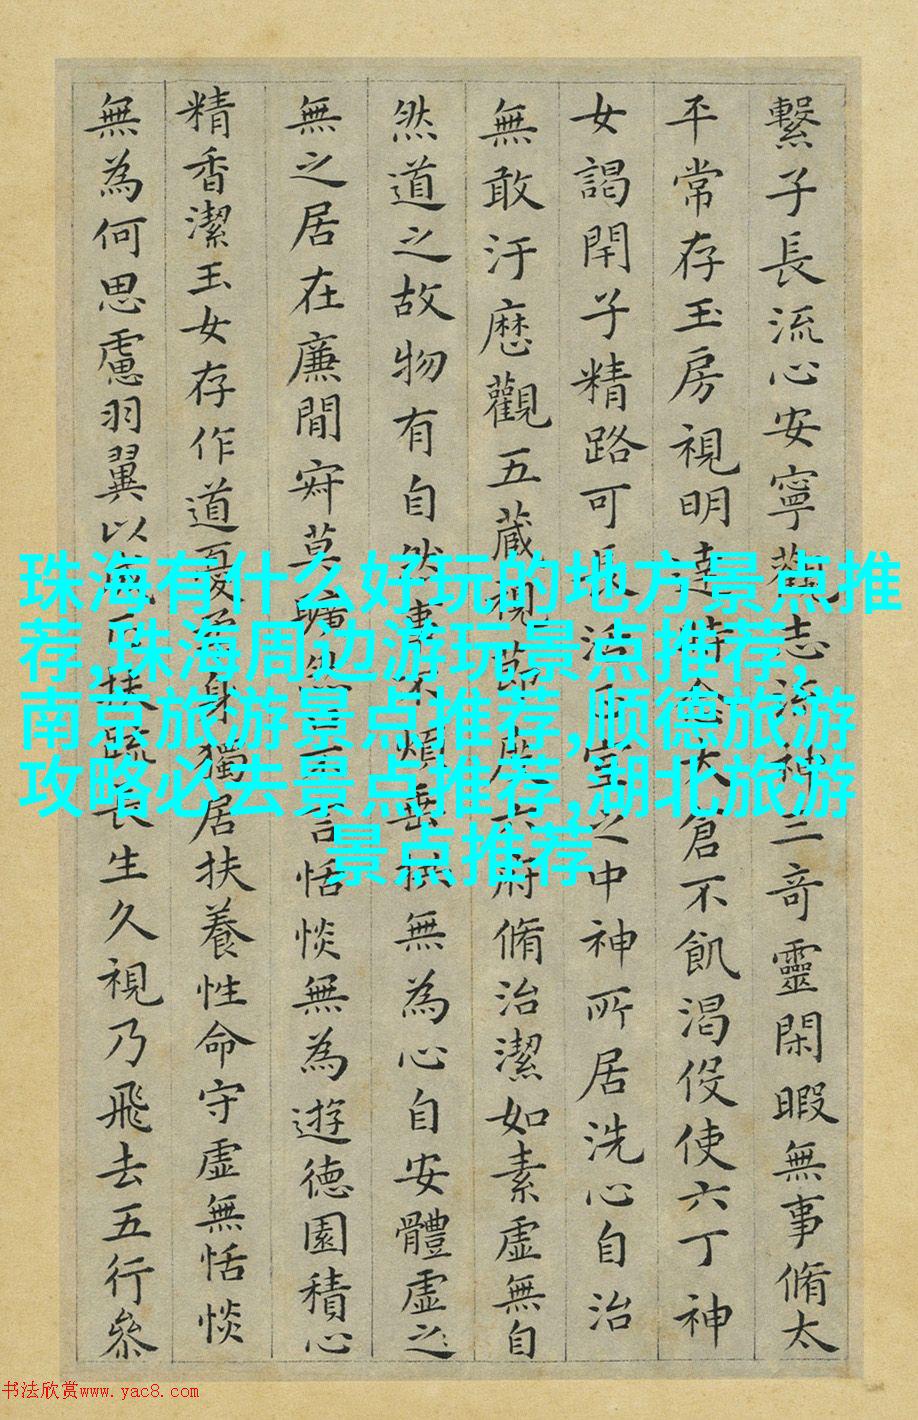 繫子長流心安寧觀志流神三奇靈閑暇無事脩太
平常存玉房視明達時念大倉不飢渴伇使六丁神
女謁閇子精路可長活正室之中神所居洗心自治
無敢汙歷觀五藏視節度六府脩治潔如素虛無自
然道之故物有自然事不煩垂拱無為心自安體虛之
無之居在廉間寂莫曠然口言恬惔無為遊德園積心
精香潔玉女存作道憂身獨居扶養性命守虛無恬惔
無為何思慮羽翼以成正扶疏長生久視乃飛去五行叅
珠海有什么好玩的地方景点推
荐,珠海周边游玩景点推荐,
南京旅游景点推荐,顺德旅游
攻略必去景点推荐,湖北旅游
景点推荐
书法欣赏www.yac8.com